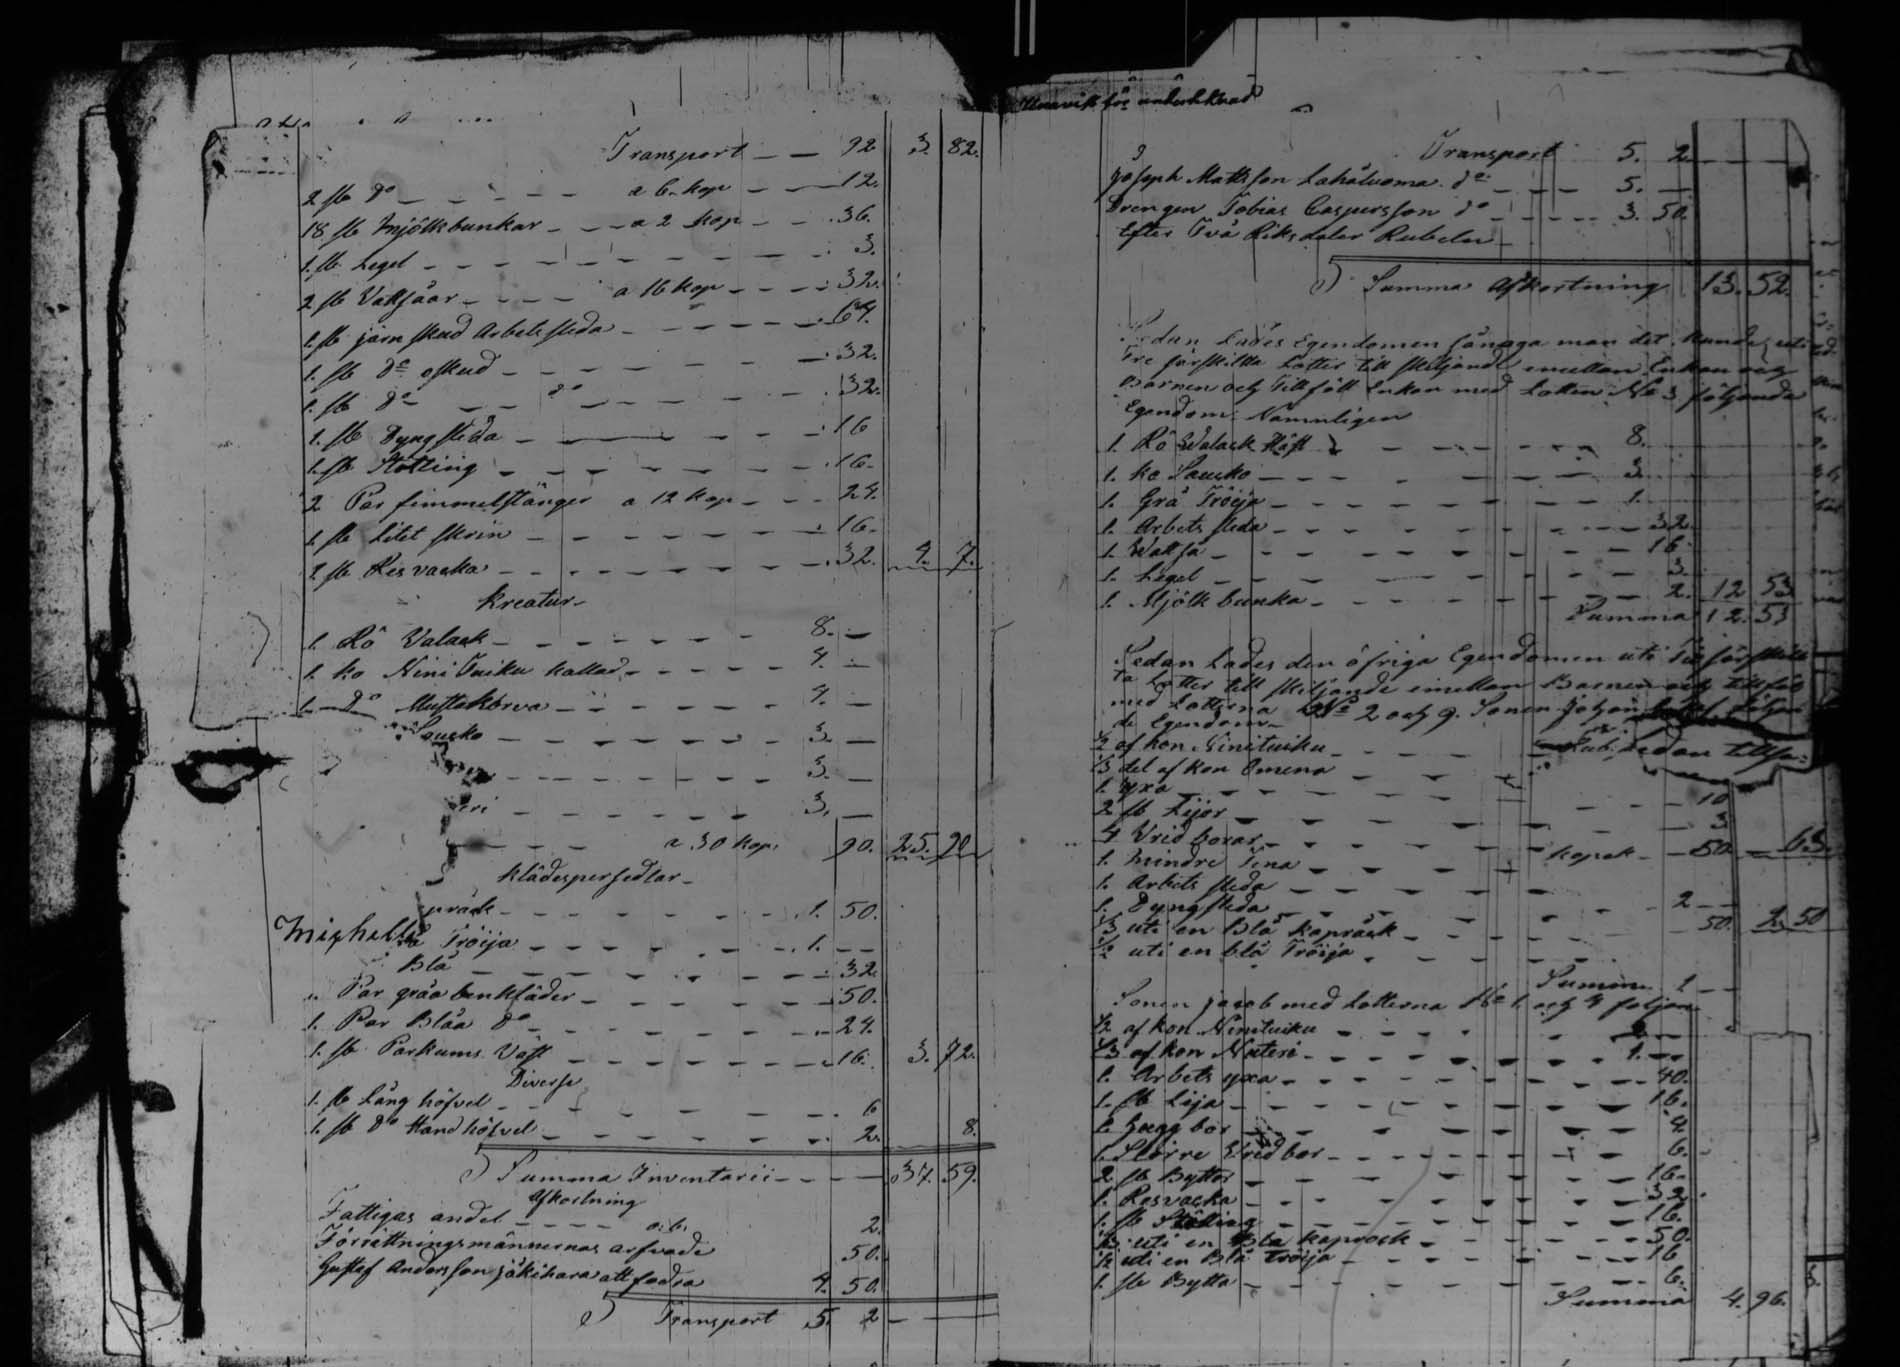 Transport — — 92 3. 82.
2 st do — — — a 6 kop — — 12.
18 st Mjölkbunkar — — a 2 kop — — 36.
1. st Legel — — — 3.
2 st Vattsåar — — — a 16 kop — — 32.
1. st järn skud Arbetssleda — — — 64.
1. st do oskud — — — 32.
1. st do — — do — — 32.
1. st Dyngsleda — — — 16
1. st Stötting — — — 16.
2 Par fimmelstänger a 12 kop — — 24.
1. st Litet skrin — — — 16.
2 st Res vacka — — — 32. 4. 7.
Kreatur
1. Rö Valack — — — 8. —
1. ko Nini Tuiku kallad — — — 4. —
1. do Mustikorva — — — 4. —
Sauko — — — 3. —
— — — 3. —
eri — — — 3. —
— — — a 30 kop. 90. 25. 90
Klädespersedlar
präck — — — 1. 50.
Mighell Tröija — — — 1. —
Blå — — — 32.
Par gråa benkläder — — — 50.
1. Par Blåa do — — — 24.
1. st Parkums Väst — — — 16. 3. 72.
Diverse
1. st Lång höfvel — — — 6
1. st do Handhöfvel — — — 2. 8.
Summa Inventarii — — — 37. 59.
Afkortning
Fattigas andel — — — 2.
Förrättningsmännernas arfvode 50.
Gustaf Andersson jäkihara att fodra 4. 50.
Transport 5. 2 —
underteknad
Transport 5. 2
Joseph Mattsson do — — 5. —
Drengen Tobias Caspersson do — — 3. 50.
Efter Två Riksdaler Rubeln
Summa Afkortning 13. 52.
Sedan Lades Egendomen så noga man det kunde uti
Tre särskillta Lotter till skiljande emellan Enkan och
Barnen och Tillföll Enkan med Lotten No 3 följande
Egendom Nämnligen
1. Rö Walack Häst — — 8.
1. ko Sauko — — — 3.
1. Grå Tröija — — — 1.
1. Arbets sleda — — — 32
1. Wattså — — — 16
1. Legel — — — 3
1. Mjölk bunka — — — 2. 12 53
Summa 12. 53
Sedan Lades den öfriga Egendomen uti
ta Lotter till skiljande emellan Barnen och tillföll
med Lotterna No 2 och 9. Sonen
de Egendom
½ af kon Ninituiku — — — Rub. sedan tillfö:
⅓ del af kon Omena — — —
1. Yxa — — — 10
2 st Lijor — — — 3
4 Vrid borar — — — kopek — 50 — 63
1. Mindre Tina — — —
1. Arbets sleda — — —
1. Dyngsleda — — — 2 —
⅓ uti en Blå kapråck — — — 50 2. 50
½ uti en blå Tröija — — —
Summa 1 —
Sonen Jacob med Lotterna No 1. och 4 följan
½ af kon Ninituiku — — — 2. —
⅓ af kon Materi — — — 1. —
1. Arbets yxa — — — 40.
1. st Lija — — — 16.
1. bor — — — 4.
1. Större Vridbor — — — 6.
2 st Byttor — — — 16.
1. Resvacka — — — 32
1. st Stötting — — — 16.
⅓ uti en Blå kaprock — — — 50.
½ uti en Blå Tröija — — — 16
1. st Bytta — — — 6.
Summa 4. 96.